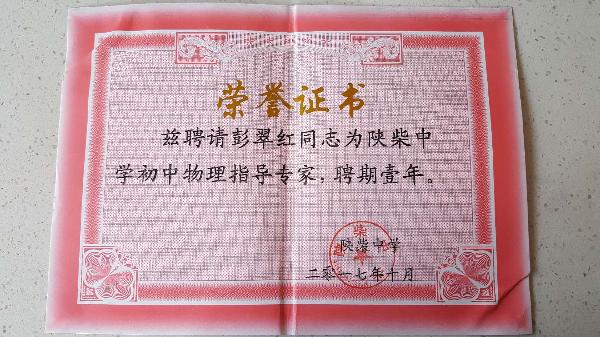 荣誉证书
兹聘请彭翠红同志为陕柴中
学初中物理指导专家，聘期壹年。
陕柴中学
二零一七年十月